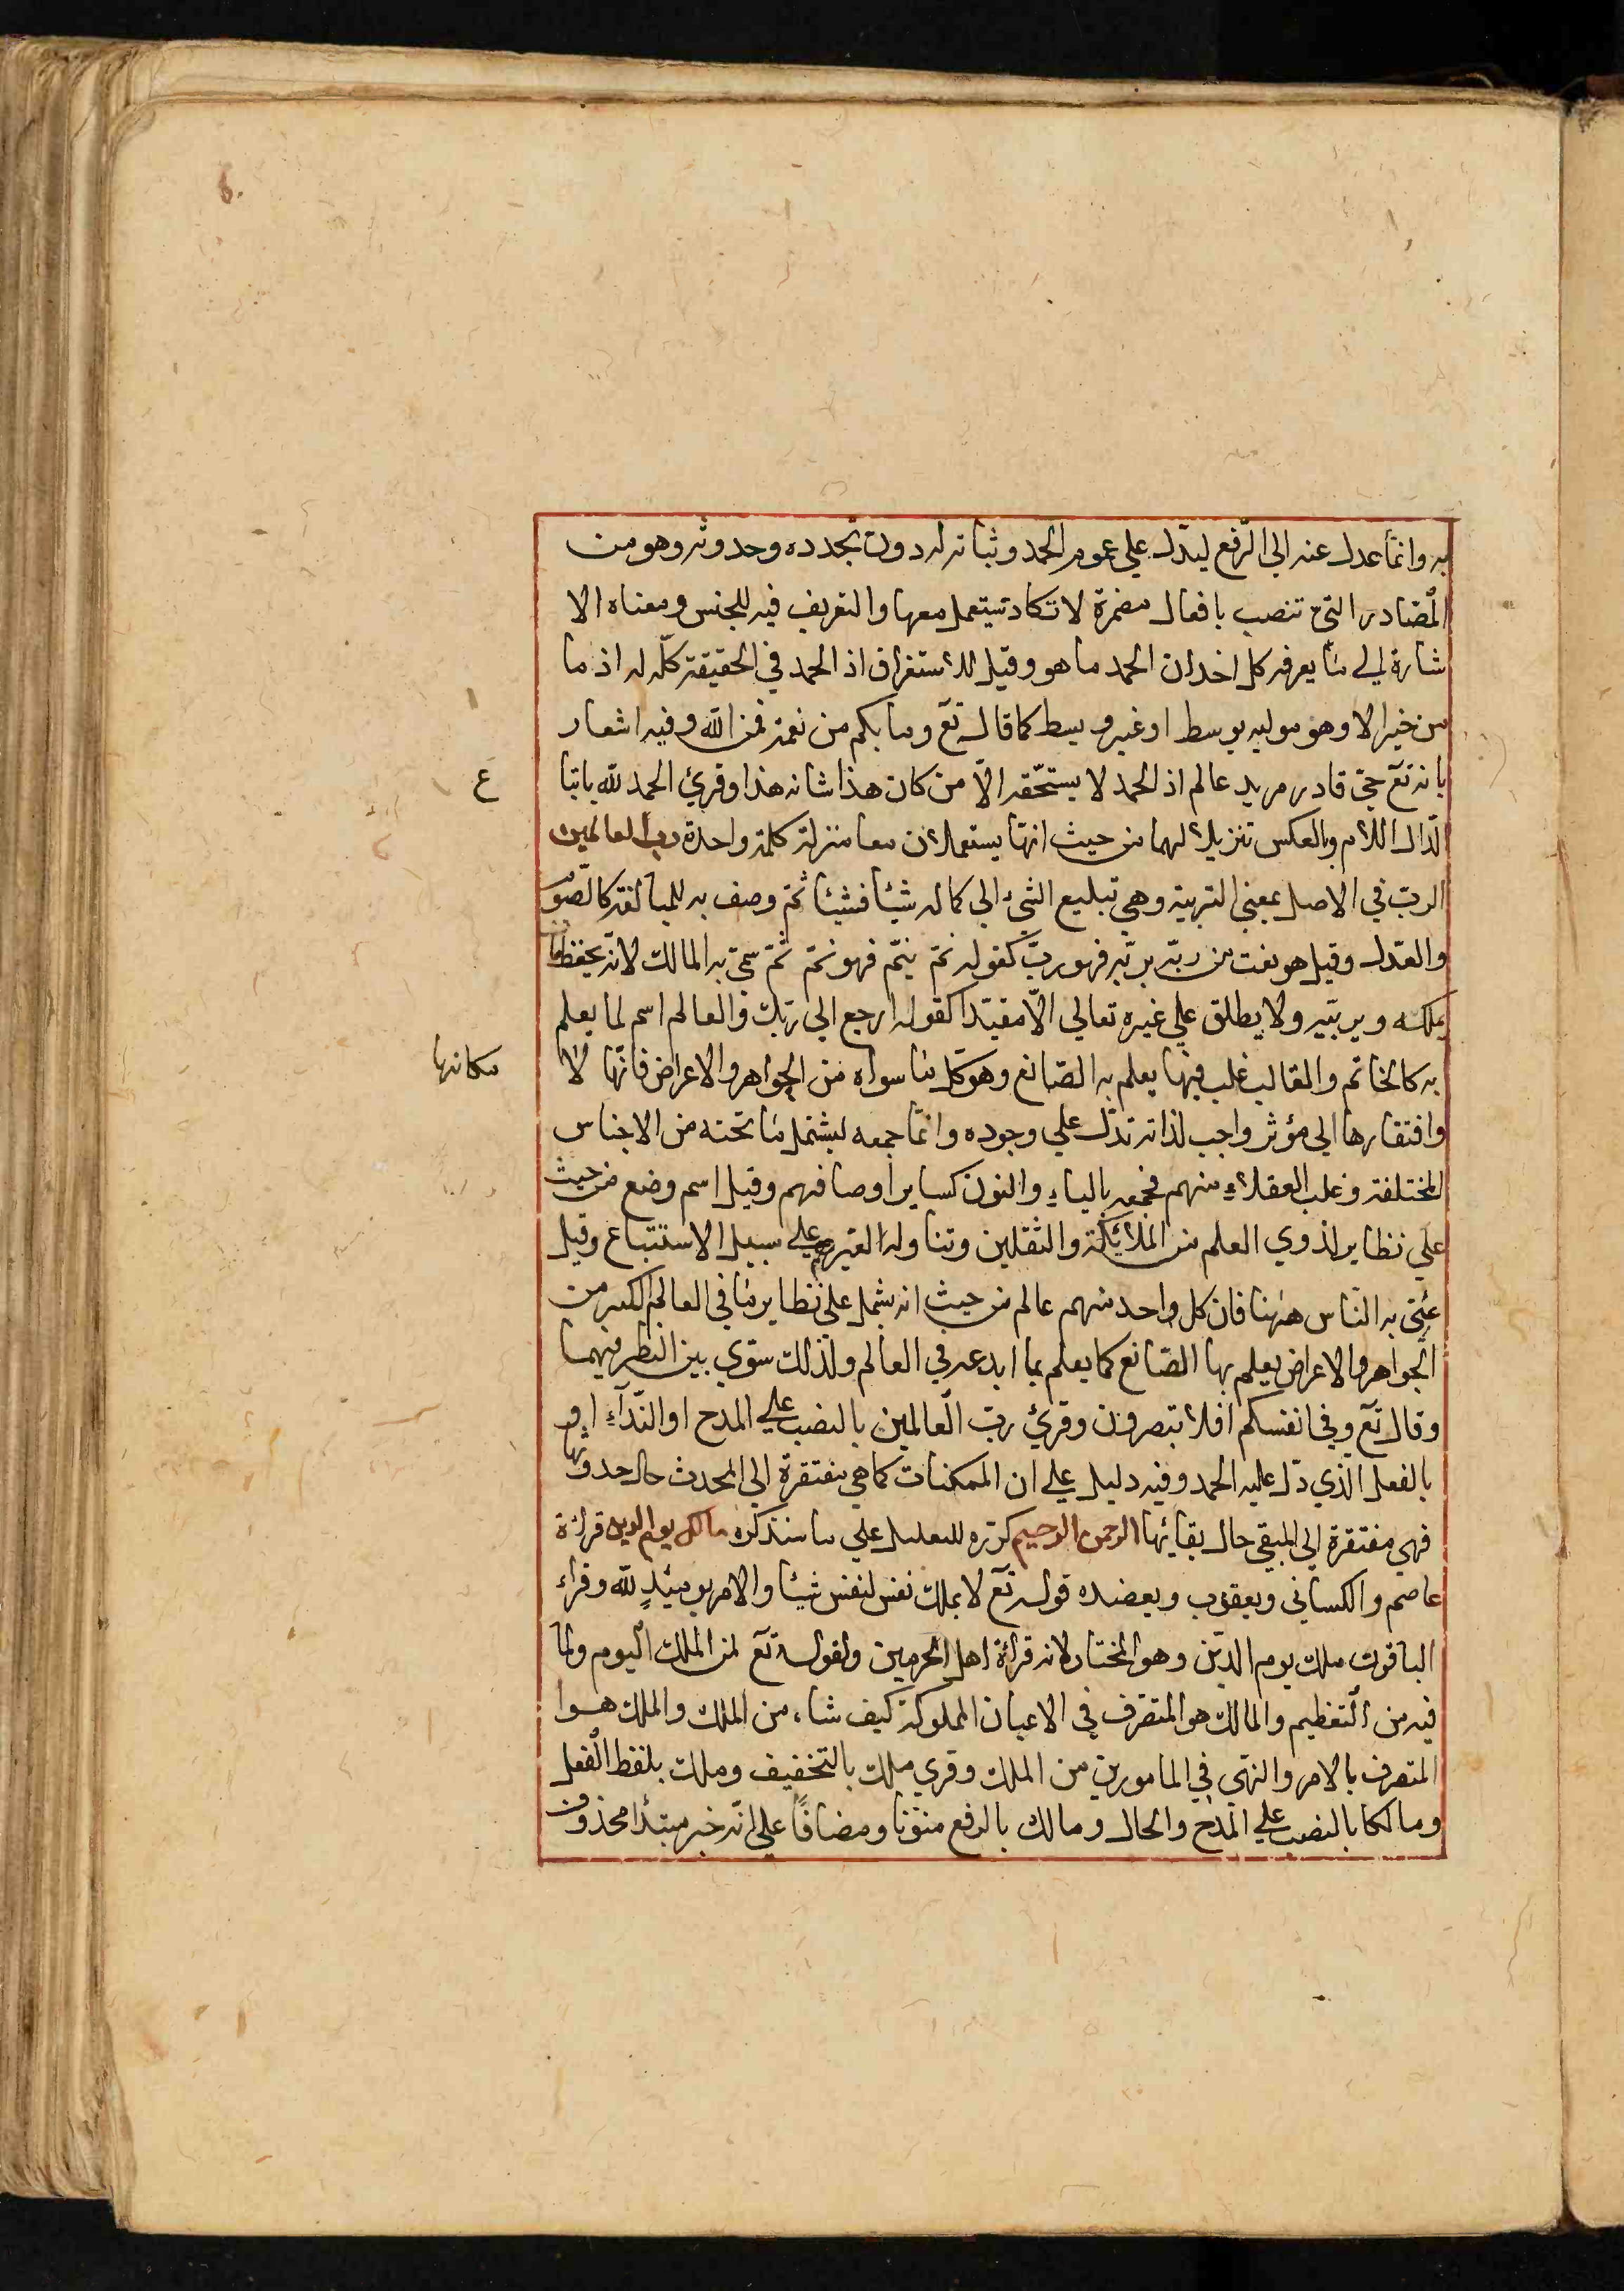 به وانما عدل عنه الي الرّفع ليدّل علي عموم الحمد وثباته له دون تجدده وحدوثه وهو من
المصادر التي تنصب بافعال مضمرة لا تكاد تستعمل معها والتعريف فيه للجنس ومعناه الا
شارة الي ما يعرفه كل احد ان الحمد ما هو وقيل للاستغراق اذ الحمد في الحقيقة كلّه له اذ ما
من خير الا وهو موليه بوسط او غير وسط كما قال تع وما بكم من نعمة فمن الله وفيه اشعار
بانه تع حيّ قادر مريد عالم اذ الحمد لا يستحّقه الّا من كان هذا شانه هذا وقرئ الحمد لله باتبا
ع
الدّال اللام وبالعكس تنزيلا لهما من حيث انهّا يستعملان معا منزلة كلمة واحدة رب العالمين
الربّ في الاصل بمعنى التربية وهي تبليغ الشيء الي كماله شيئا فشيئا ثمّ وصف به للمبالغة كالصّوم
والعدل وقيل هو نعت من ربّه يربّه فهو ربّ كقوله نمّ ينمّ فهو نمّ ثمّ سمّي به المالك لانّه يحفظ ما
يملكه ويربّيه ولا يطلق علي غيره تعالي الّا مقيّدا كقوله ارجع الي ربّك والعالم اسم لما يعلم
به كالخاتم والقالب غلب فيما يعلم به الصّانع وهو كلّ ما سواه من الجواهر والاعراض فانّها لا
مكانها
وافتقارها الي مؤثر واجب لذاته تدّل علي وجوده وانمّا جمعه ليشتمل ما تحته من الاجناس
المختلفة وغلب العقلاء منهم فجمعه بالياء والنون كساير اوصافهم وقيل اسم وضع من حيث
علي نظاير لذوي العلم من الملائكة والثقلين وتناوله الغيرهم علي سبيل الاستتباع وقيل
عنّي به النّاس ههنا فان كل واحد منهم عالم من حيث انه يشمل علي نظاير ما في العالم الكبير من
الجواهر والاعراض يعلم بها الصّانع كما يعلم بما ابدعه في العالم ولذلك سوّي بين النظر فيهما
وقال تع وفي انفسكم افلا تبصرون وقرئ ربّ العالمين بالنصب علي المدح او النّداء او
بالفعل الذي دّل عليه الحمد وفيه دليل علي ان الممكنات كما هي مفتقرة الي المحدث حال حدوثها
فهي مفتقرة الي المبقي حال بقائها الرحمن الرحيم كرّره للتعليل علي ما سنذكره مالك يوم الدين قراءة
عاصم والكسائي ويعقوب ويعضده قوله تع لا يملك نفس لنفس شيئا والامر يومئذٍ لله وقراء
الباقون ملك يوم الدّين وهو المختار لانه قراءة اهل الحرمين ولقوله تع لمن الملك اليوم ولما
فيه من التعظيم والمالك هو المتصّرف في الاعيان المملوكة كيف شاء من الملك والملك هوا
المتصرف بالامر والنهّي في المامورين من الملك وقري ملك بالتخفيف وملك بلفظ الفعل
ومالكا بالنصب علي المدح والحال ومالك بالرفع منوّنا ومضافًا علي انّه خبر مبتدا محذوف